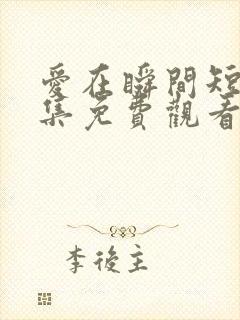 愛在瞬間短
集免費觀看
李後主